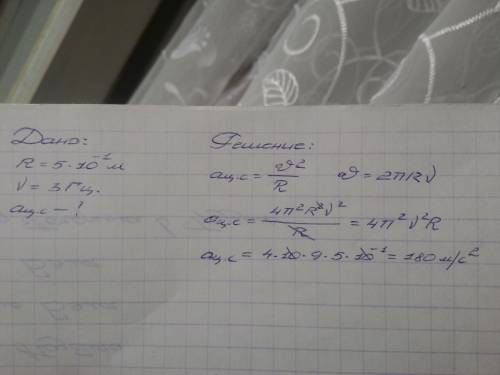 Дано:
R = 5·10⁻¹ м
ν = 3 Гц.
aц.с – ?
Решение:
aц.с = υ²/R υ = 2πRν
aц.с = 4π²R²ν²/R = 4π²ν²R
aц.с = 4·10·9·5·10⁻¹ = 180 м/с²